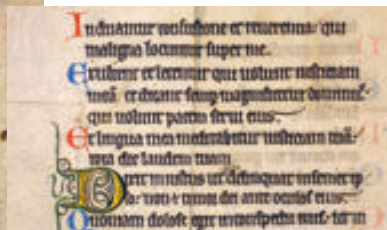 Induantur confusione et reuerentia qui
maligna locuntur super me.
Exultent et letentur qui uolunt iusticiam
meā et dicant semp magnificetur dominus
qui uolunt pacem serui eius.
Et lingua mea meditabitur iusticiam tuā
tota die laudem tuam
Dixit iniustus ut delinquat in semet ip
so non e timor dei ante oculos eius.
Quoniam dolose egit in conspectu eius ut in